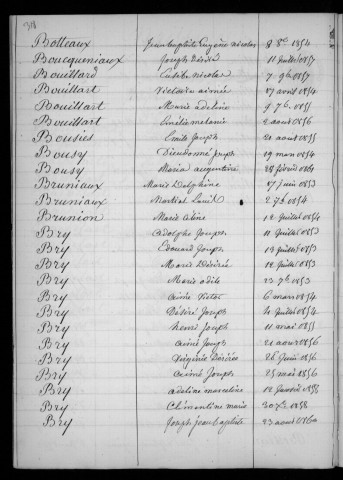 Botteaux Jean baptiste Eugène nicolas 8 8bre 1854
Boucqueniaux Joseph Désiré 11 Juillet 1857
Bouillard nicolas 7 9bre 1857
Bouillart Victoria aimée 17 avril 1854
Bouillart Marie adeline 9 7b. 1855
Bouillart melanie 2 aout 1856
Bousies Emile Joseph 21 aout 1855
Bousy Dieudonné Joseph 19 mars 1854
Bousy Maria augustine 28 février 1861
Bruniaux Marie Delphine 17 juin 1853
Bruniaux Martial Louis 2 7b 1854
Brunion Marie Céline 12 Juillet 1854
Bry adolphe Joseph 11 Juillet 1853
Bry Edouard Joseph 13 Juillet 1853
Bry Marie Désirée 12 Juillet 1853
Bry Marie odile 23 7b 1853
Bry aimé Victor 6 mars 1854
Bry Désiré Joseph 4 Juillet 1854
Bry henri Joseph 11 mai 1855
Bry aimé Joseph 21 aout 1856
Bry Virginie Désirée 26 Juin 1856
Bry aimé Joseph 25 mai 1856
Bry adeline marceline 12 Janvier 1858
Bry Clémentine marie 20 Xb. 1858
Bry Joseph jean baptiste 23 aout 1860